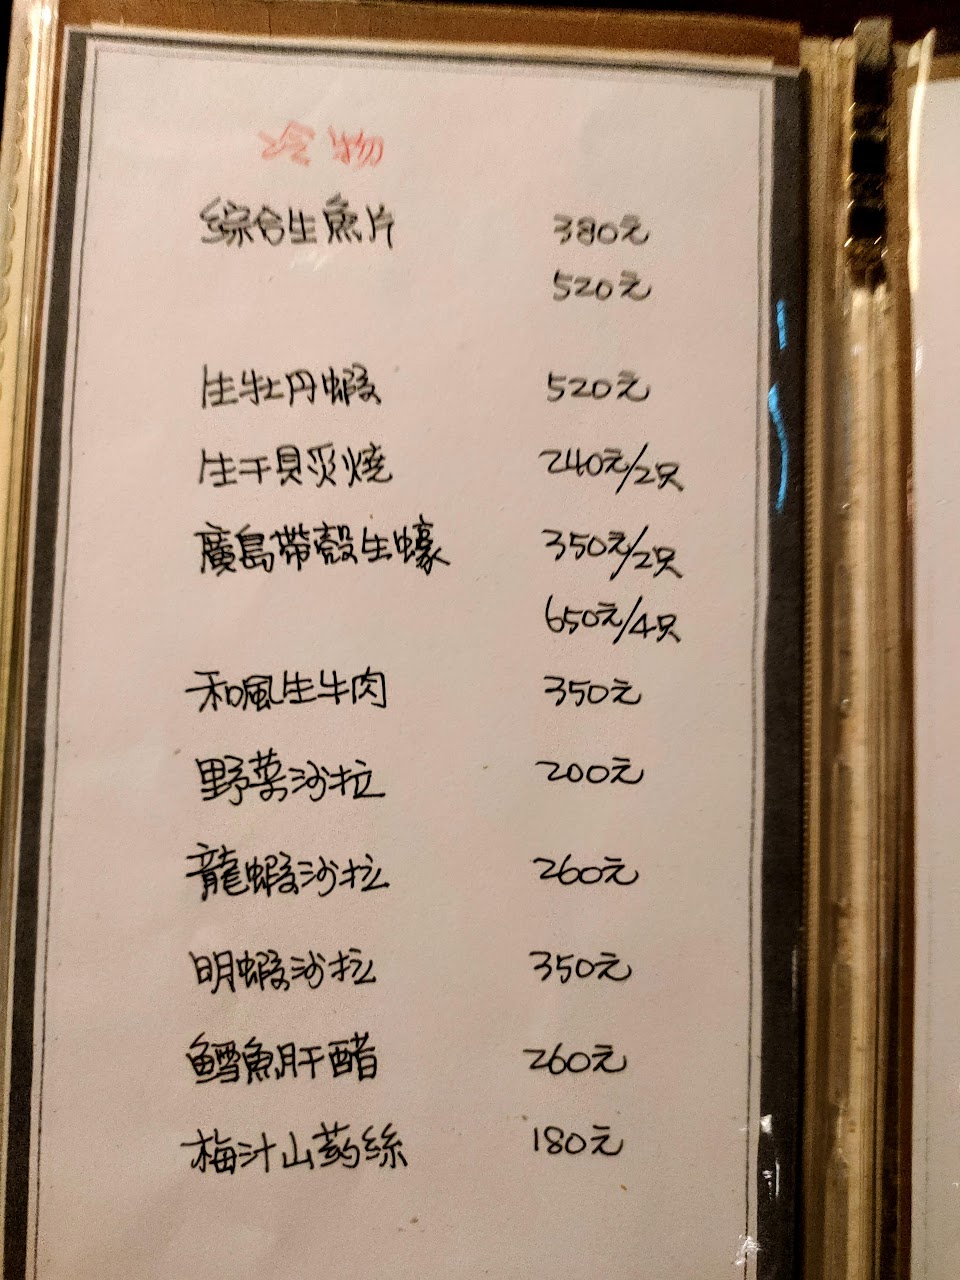 冷物
綜合生魚片 380元
520元
生牡丹蝦 520元
生干貝炙燒 240元/2只
廣島帶殼生蠔 350元/2只
650元/4只
和風生牛肉 350元
野菜沙拉 200元
龍蝦沙拉 260元
明蝦沙拉 350元
鱈魚肝醋 260元
梅汁山药絲 180元